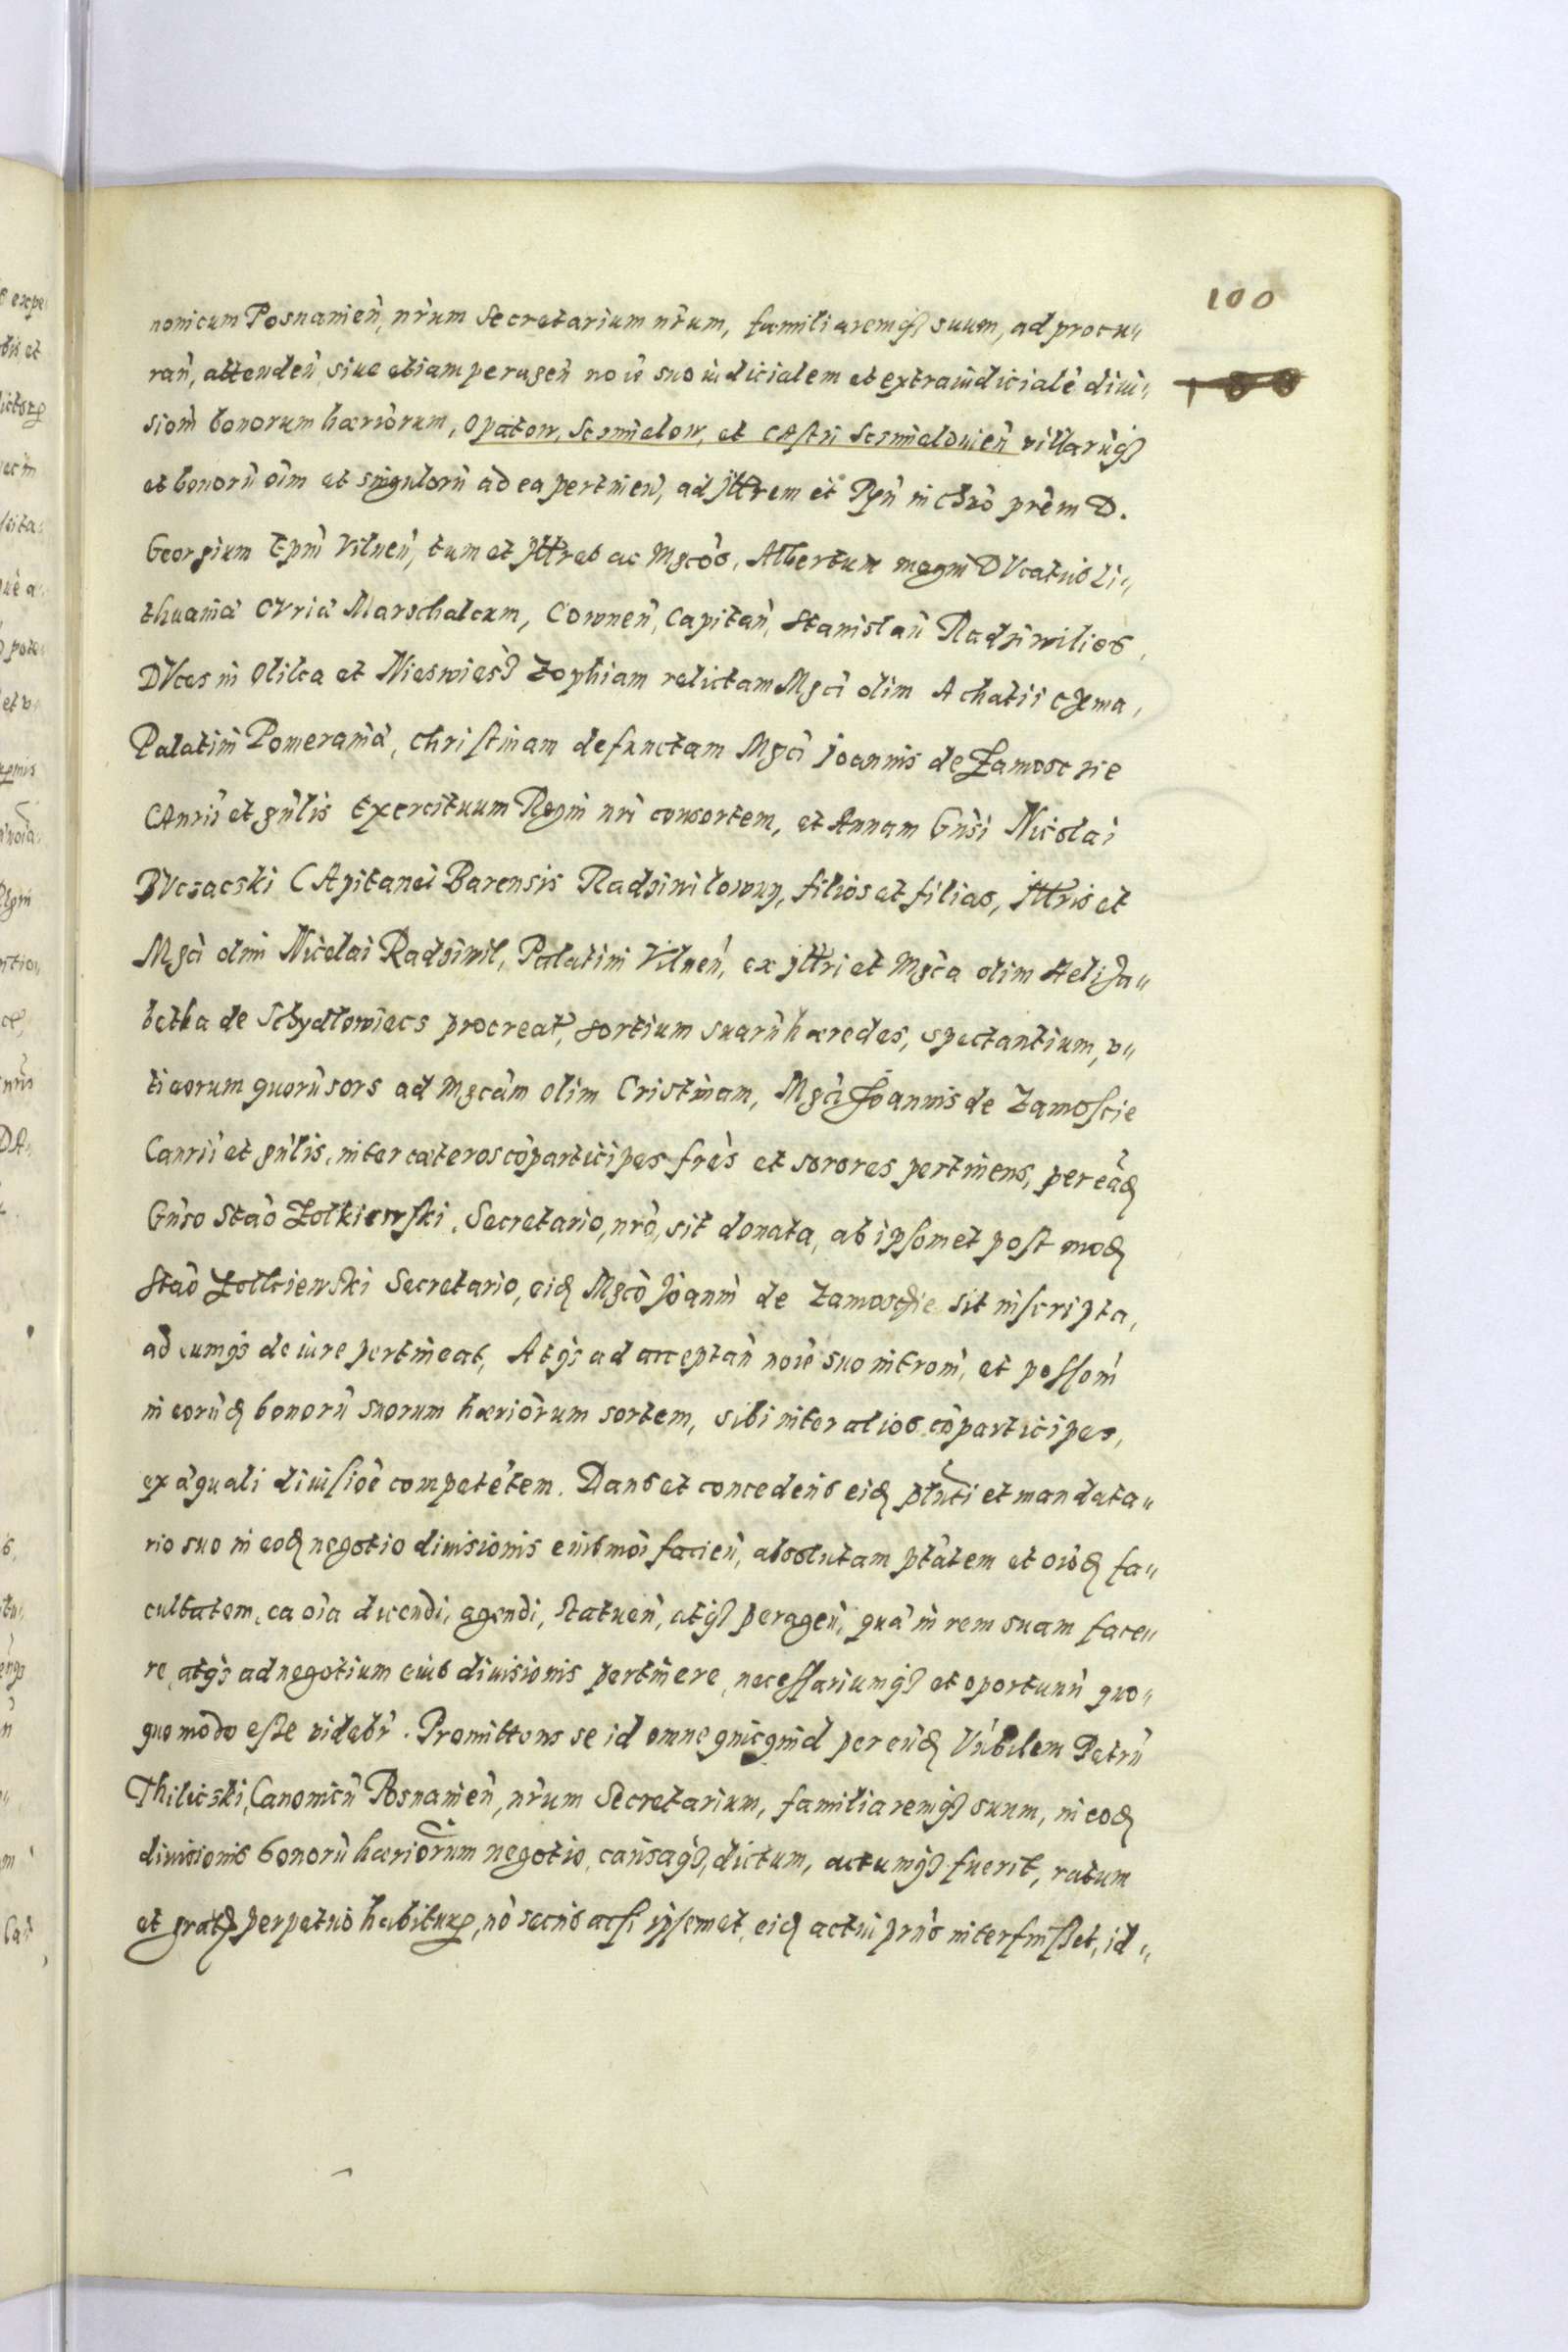 100
100
nonicum Posnanień, nr̃um Secretarium nr̃um, familiaremq₃ suum, ad procu„
rań, attendeń, siue etiam perageń noĩe suo iudicialem et extraiudicialẽ diui„
sionẽ bonorum hæriõrum, Opatow, Scsmielow, et CAstri Scsmielouień villarũq₃
et bonorũ oĩm et singulorũ ad ea pertineń, ad Jllrem et Rgñ in chrõ prẽm D.
Georgium Epm̃ Vilneń, tum et Jllres ac Mgcõs, Albertum magni DVcatus Li„
thuaniæ CVriæ Marschalcum, Cownen, Capitań, Stanislaũ Radziwilios,
DVces in Olika et Nieswies₃ Zophiam relictam Mgci olim Achatii Czema,
Palatini Pomeraniæ, Christinam defunctam Mgci Joannis de Zamosczie
CAnrii et gñlis Exercituum Regni nri consortem, et Annam Gñsi Nicolai
BVczacski CApitanei Barensis Radziwilowny, filios et filias, Jllris et
Mgci olim Nicolai Radziwil, Palatini Vilneń, ex Jllri et Mgca olim Heliza„
betha de Schydlowiecs procreat, sortium suarũ hæredes, spectantium, v„
ti eorum quorũ sors ad Mgcãm olim Cristinam, Mgci Joannis de Zamoscie
Canrii et gñlis, inter cæteros cõparticipes frẽs et sorores pertinens, per eãd
Gñso Stãõ Zolkiewski, Secretario, nrõ, sit donata, ab ipsomet post mod
Stãõ Zolkiewski Secretario, eid Mgcõ Joanni de Zamosczie sit inscripta,
ad eumq₃ de iure pertineat, Atq₃ ad acceptań noĩe suo introm̃, et possom̃
in eorũd bonorũ suorum hæriõrum sortem, sibi inter alios cõparticipes,
ex æquali diuisiõe competẽtem. Dans et concedens eid pluti et mandata„
rio suo in eod negotio diuisionis eiusmõi facień, absolutam ptãtem et oiõd fa„
cultatem, ea oĩa dicendi, agendi, statueń, atq₃ perageń, quæ in rem suam face„
re, atq₃ ad negotium eius diuisionis pertinere, necessariumq₃ et oportunũ quo„
quo modo esse videbr̃. Promittens se id omne quicquid per eũd Vñbilem Petrũ
Thilicski, Canonicũ Posnanień, nr̃um Secretarium, familiaremq₃ suum, in eod
diuisionis bonorũ hæriõrum negotio, causaq₃, dictum, actumq₃ fuerit, ratum
et grat perpetuo habitur, nõ secus acsi ipsemet, eid actui prñs interfuisset, id„